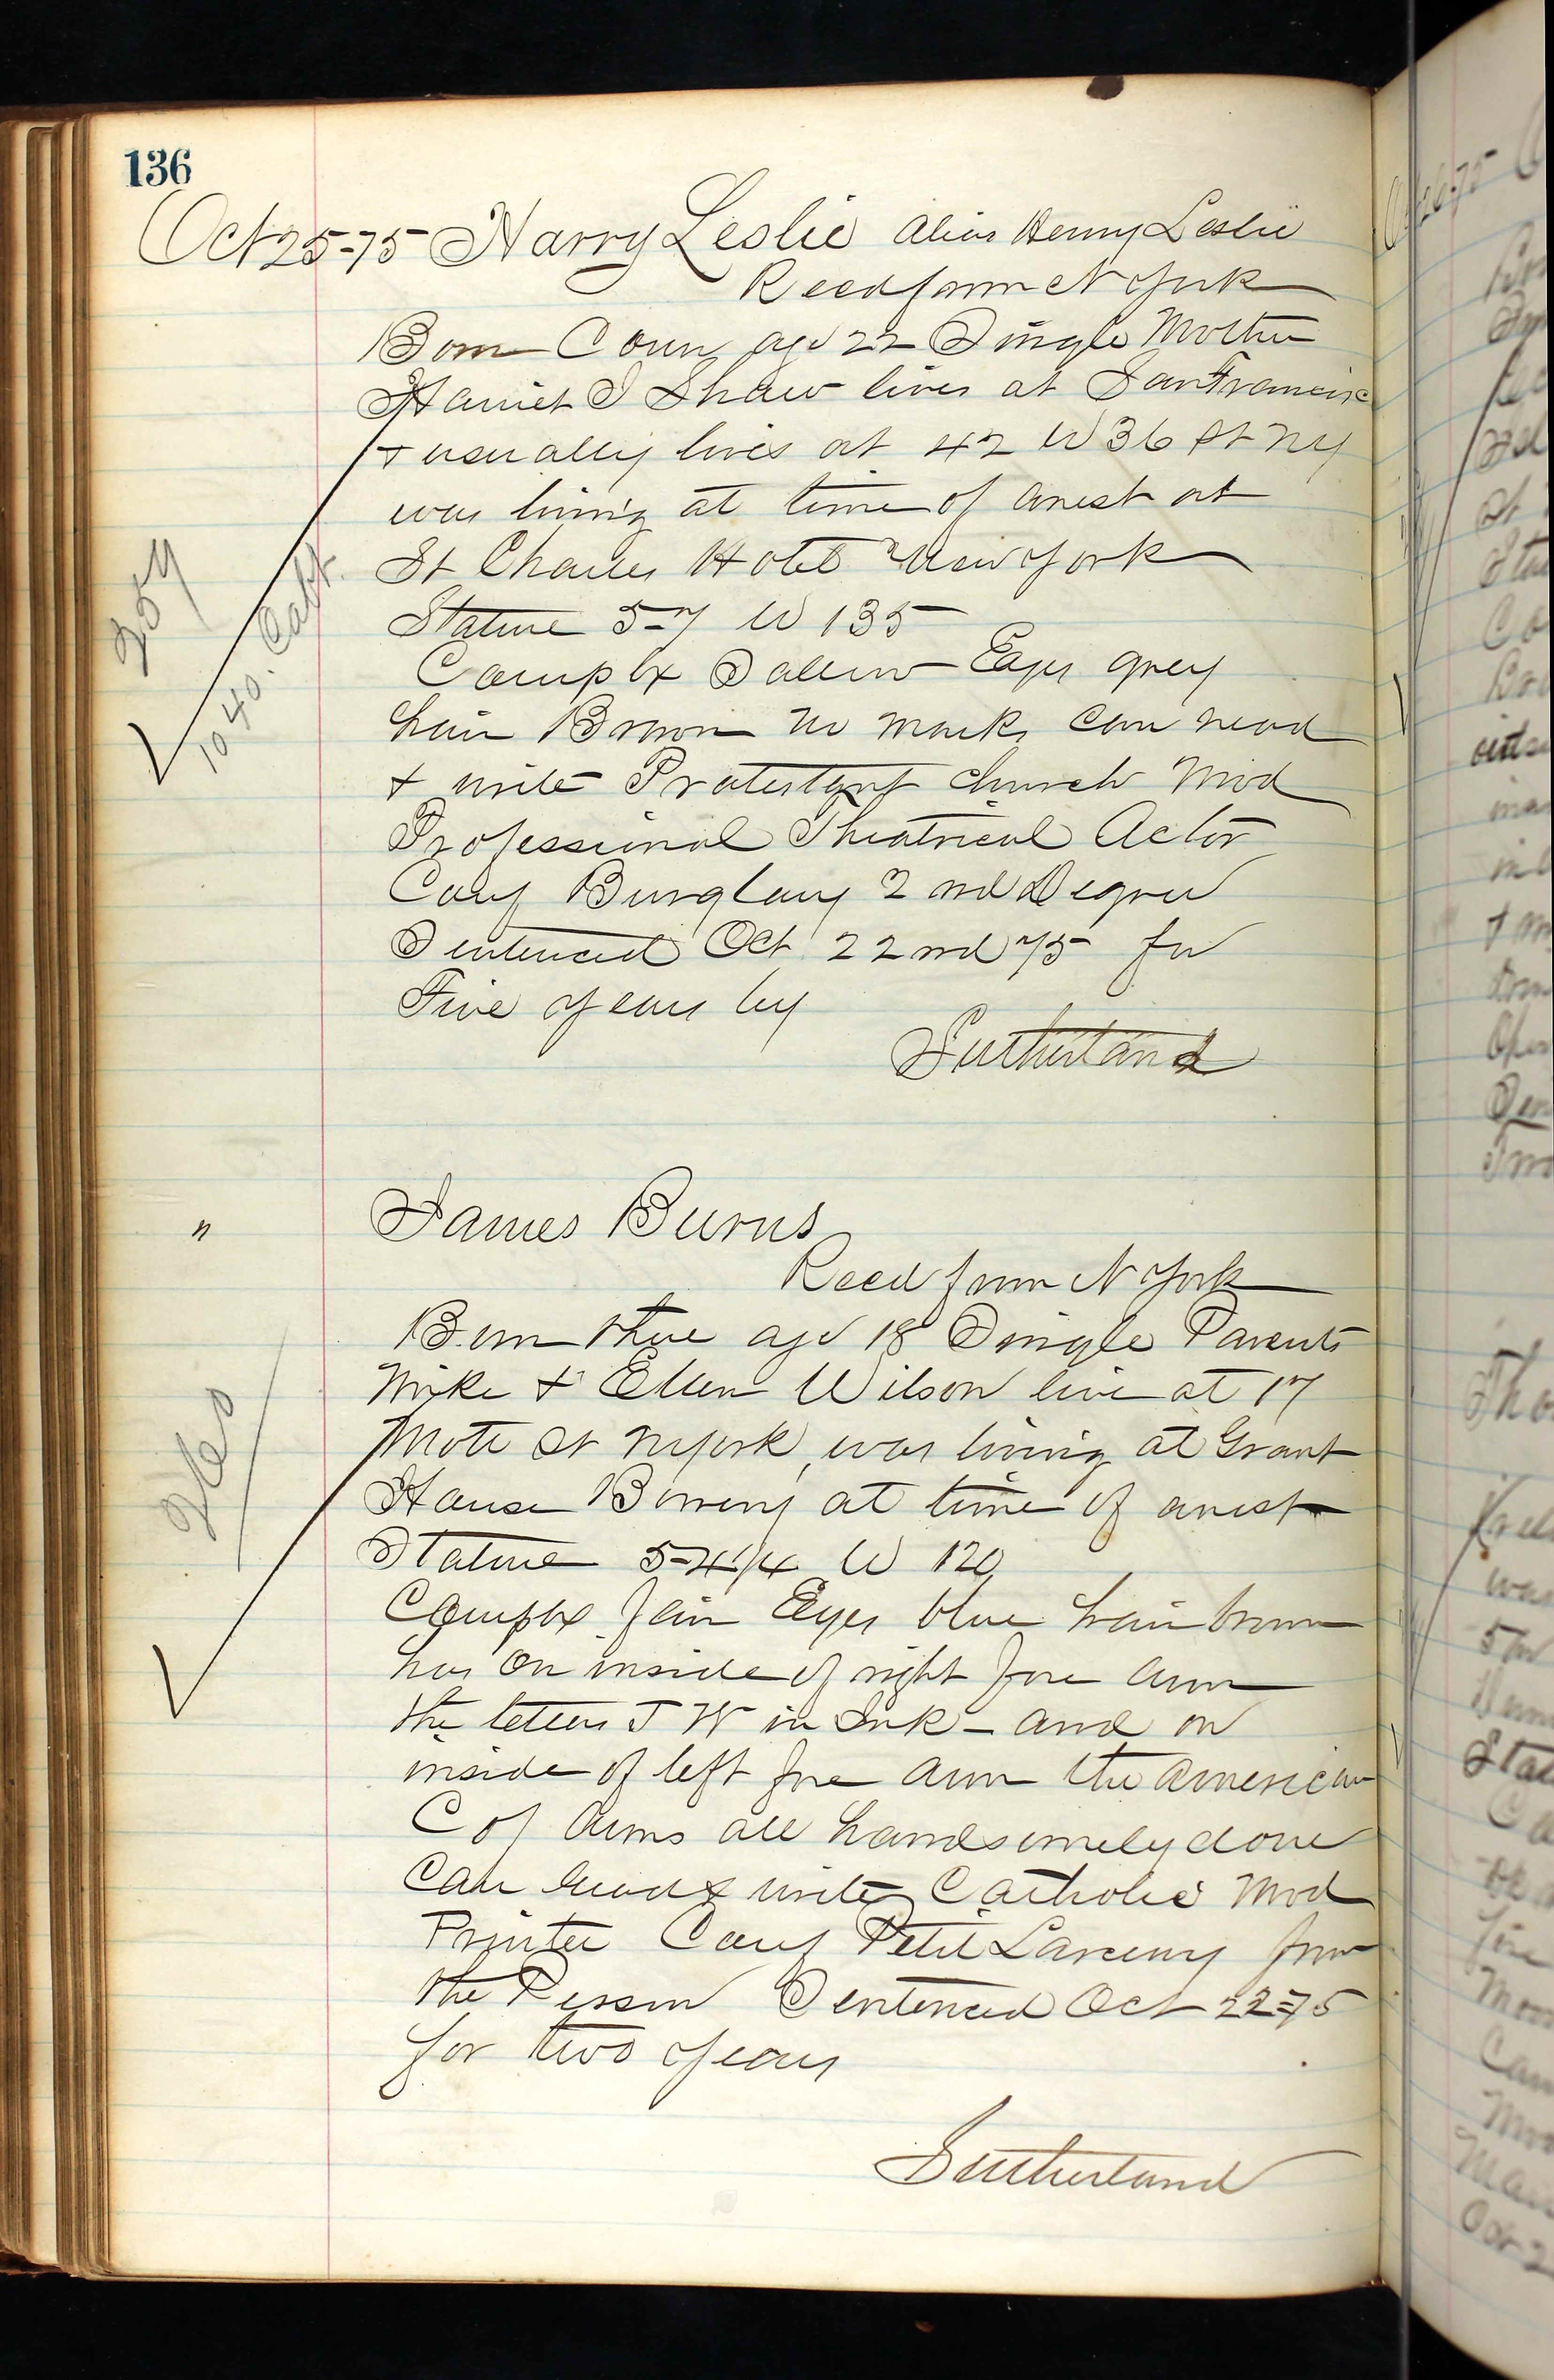 136
Oct 25-75 Harry Leslie Alias Henry Leslie
Recd from N York
Born Conn age 22 Single Mother
Harriet I Shaw lives at San Francisc
+ usually lives at 42 W 36 St NY
was living at time of arrest at
St Charles Hotel New York
Stature 5-7 W 135
259
1040. Capt.
Complx Sallow Eyes grey
hair Brown no marks can read
+ write Protestant church Mod
Professional Theatrical Actor
Conf Burglary 2nd Degree
Sentenced Oct 22nd 75 for
Five years by
Sutherland
" James Burns
Recd from N York
Born there age 18 Single Parents
Mike + Ellen Wilson live at 17
Mott St N York, was living at Grant
House Bowery at time of arrest
Stature 5-4 1/4 W 120
Complx fair Eyes blue hair brown
has on inside of right fore arm
the letters J W in Ink - and on
inside of left fore arm the American
C of Arms all handsomely done
Can read & write Catholic Mod
Printer Conf Petit Larceny from
the Person Sentenced Oct 22=75
for two years
Sutherland